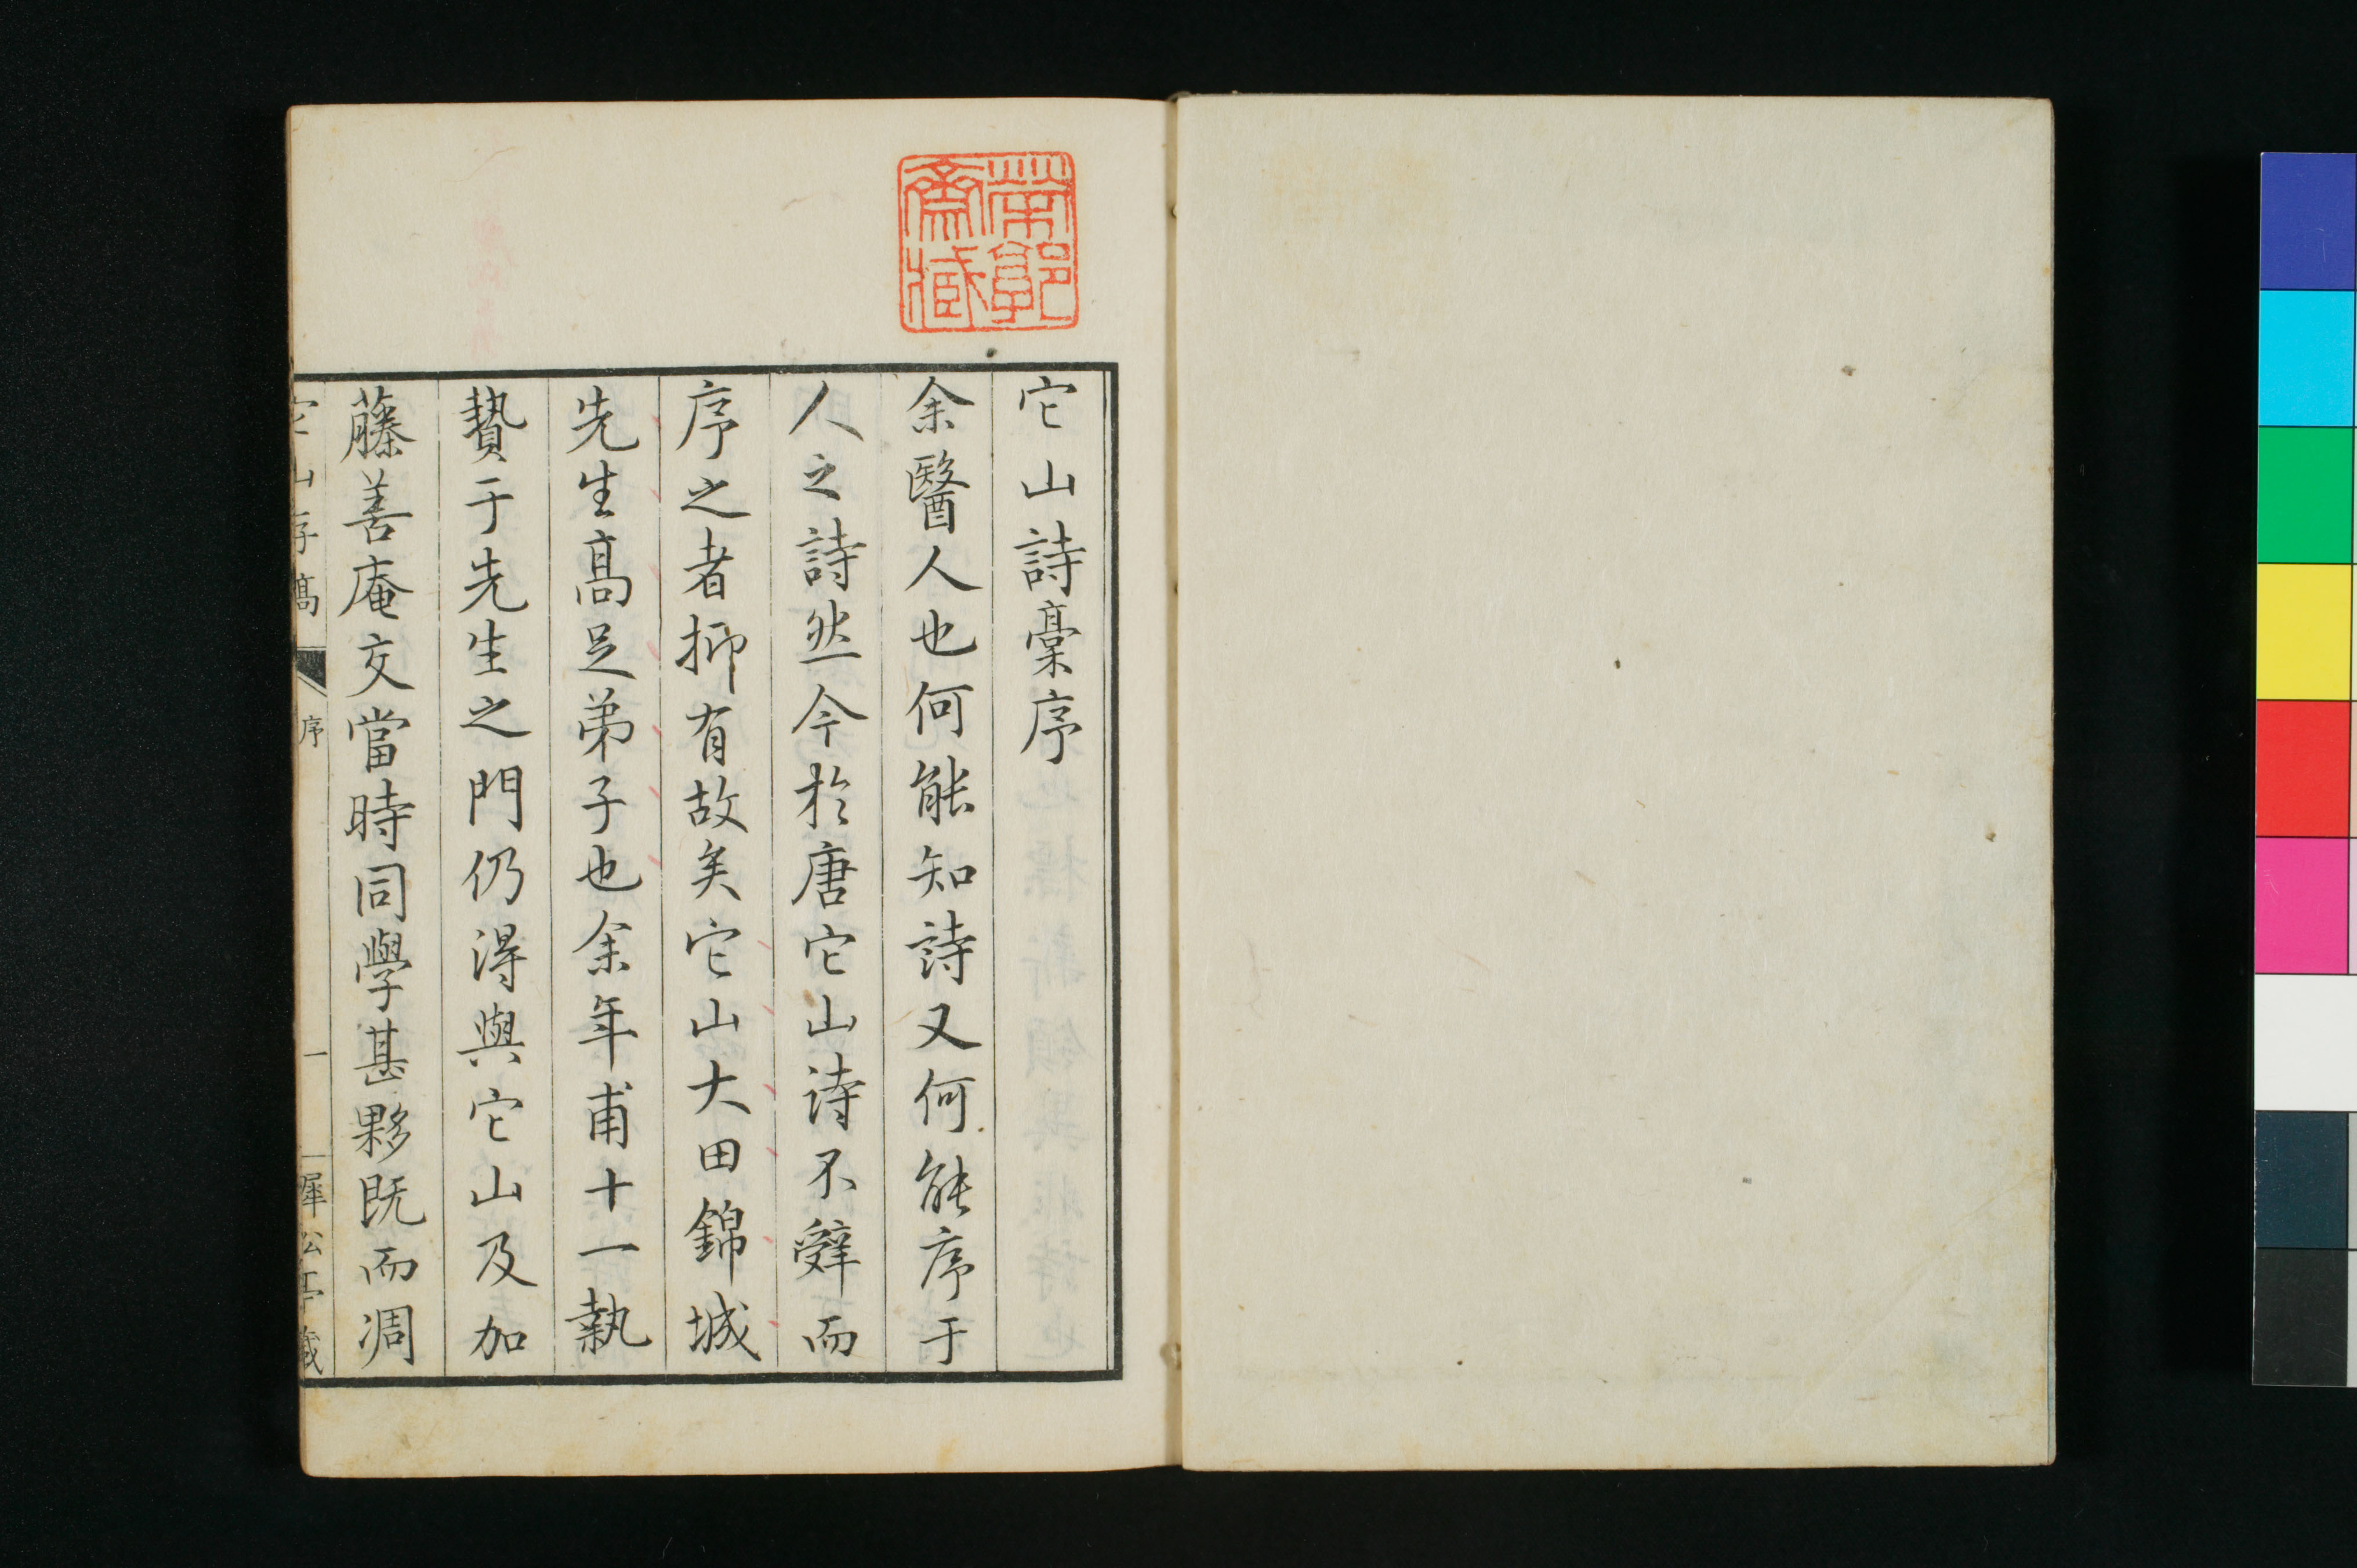 帶郭
齋藏
它山詩稾序
余醫人也何能知詩又何能序于
人之詩然今於唐它山詩不辤而
序之者抑有故矣它山大田錦城
先生高足弟子也余年甫十一執
贄于先生之門仍得與它山及加
藤善庵交當時同學甚夥既而凋
它山存稿 序 一 犀公亭藏